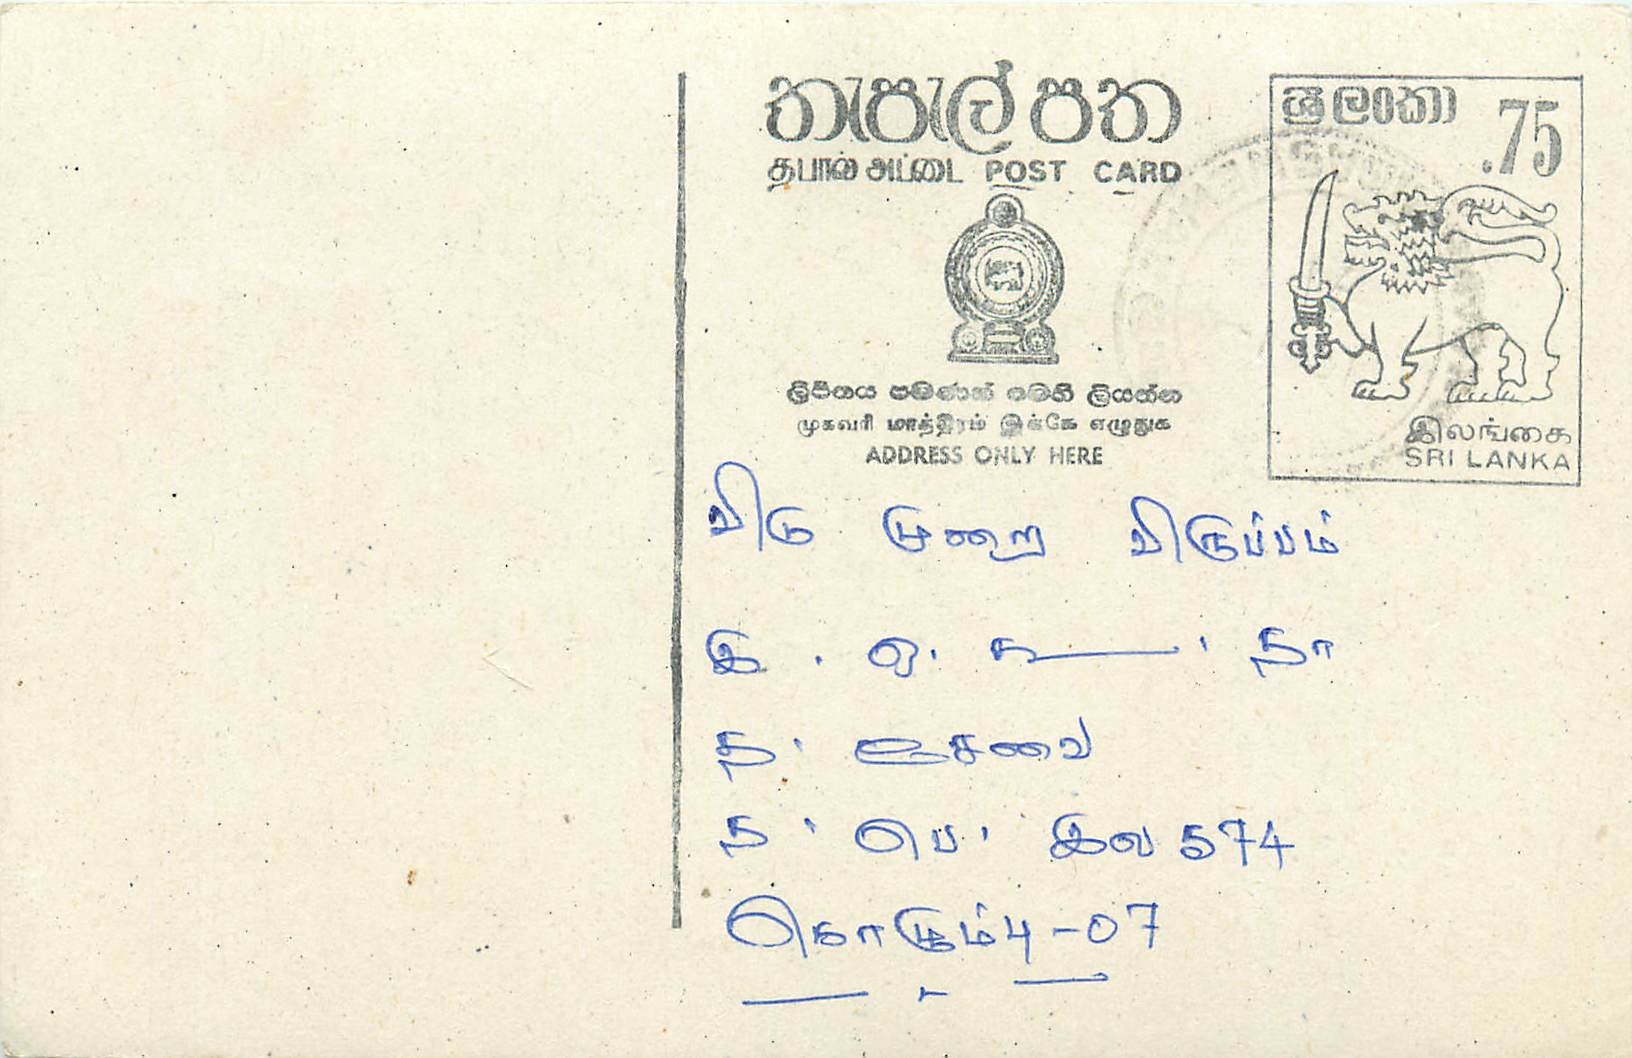 තැපැල් පත
தபால் அட்டை POST CARD
ශ්‍රී ලංකා .75
ලිපිනය පමණක් මෙහි ලියන්න
முகவரி மாத்திரம் இங்கே எழுதுக
ADDRESS ONLY HERE
இலங்கை
SRI LANKA
விடு முறை விருப்பம்
இ . ஒ. கூ . தா
த. சேவை
த. பெ. இல 574
கொழும்பு-07